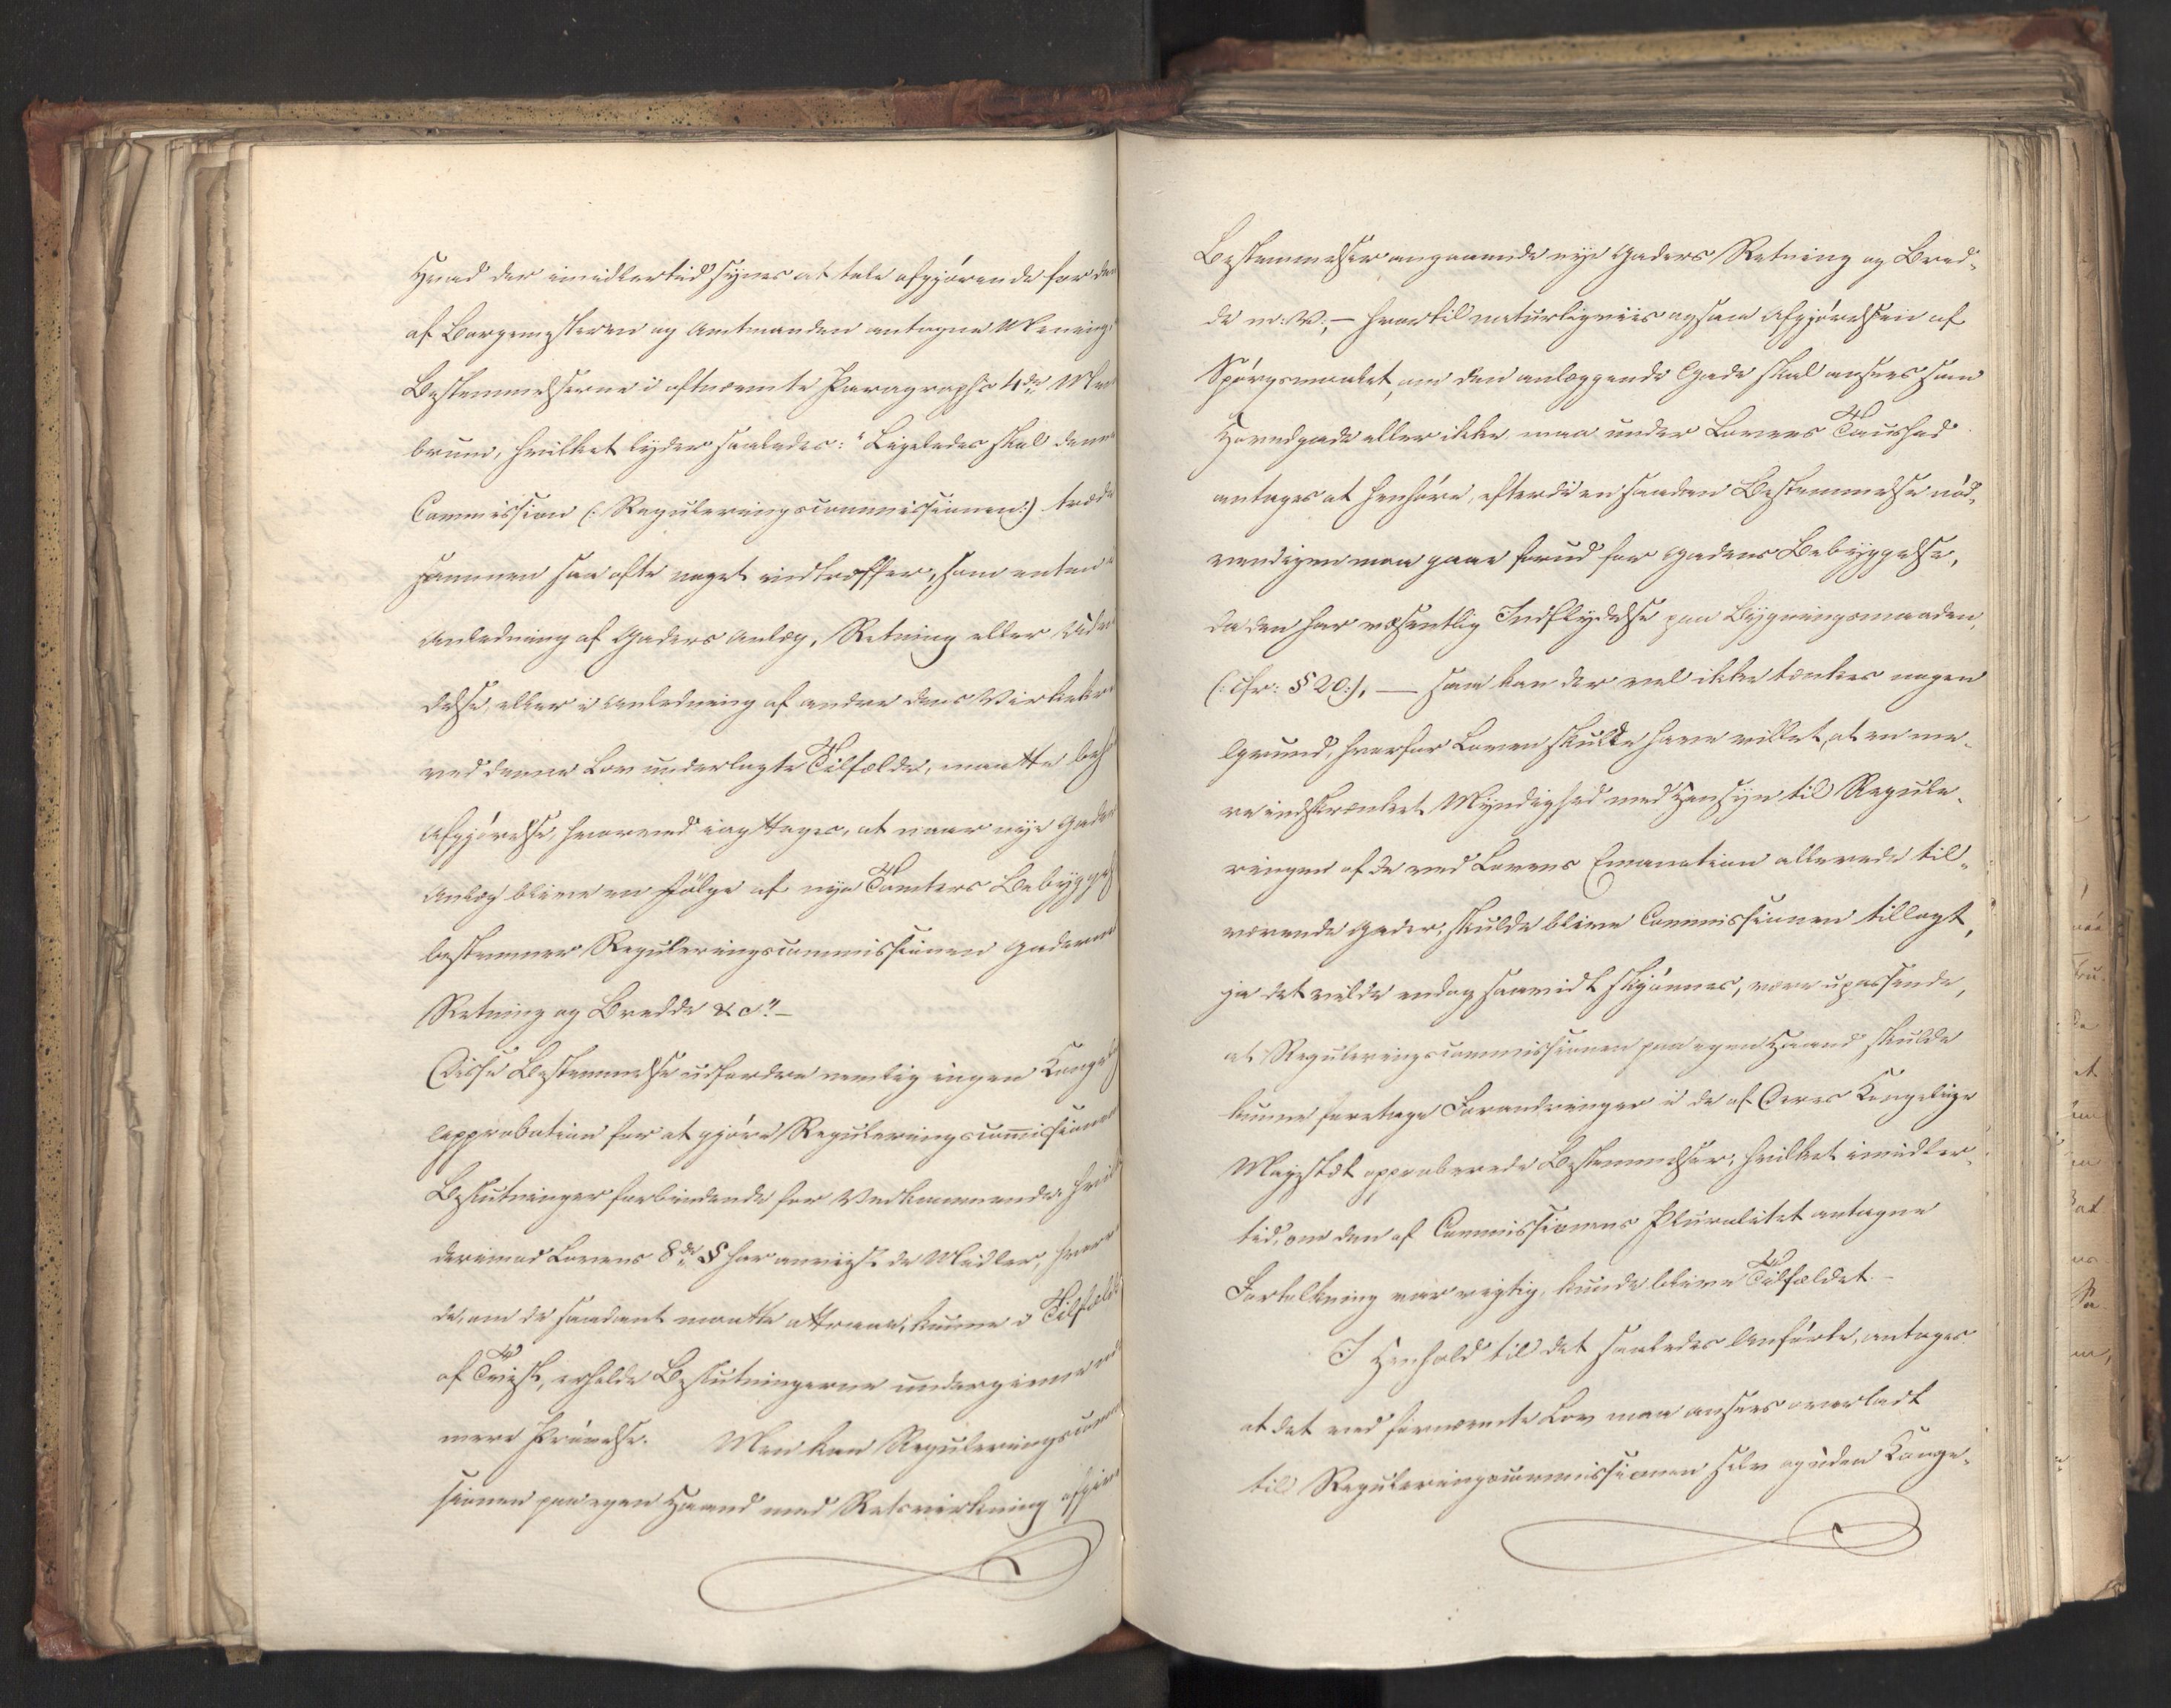 Hvad der imidlertid synes at tale afgjörende for den
af Borgemesteren og Amtmanden antagne Mening,
Bestemmelserne i oftnævnte Paragraphs 4de Mem
brum, hvilket lyder saaledes: "Ligeledes skal denne
Commission (:Reguleringscommissionen:) træde
sammen saa ofte noget indtræffer, som enten i
Anledning af Gaders Anlæg, Retning eller Udvi
delse, eller i Anledning af andre dens Virkekreds
ved denne Lov underlagte Tilfælde, maatte beh
Afgjörelse, hvorved iagttages, at naar nye Gaders
Anlæg blive en Fölge af nye Tomters Bebyggelse
bestemmer Reguleringscommissionen Gadernes
Retning og Bredde &c"–
Disse Bestemmelse udfordre nemlig ingen Kongelig
Approbation for at gjöre Reguleringscom̅issionens
Beslutninger forbindende for Vedkommende. Hvil
derimod Lovens 8de § har anviist de Midler, hvorve
de, om de saadant maatte attraae, kunne i Tilfælde
af Tvist, erholde Beslutningerne undergivne nær
mere Prövelse. Men kan Reguleringscommis
sionen paa egen Haand med Retsvirkning afgive
Bestemmelser angaaende nye Gaders Retning og Bred-
de m: V, – hvortil naturligviis ogsaa Afgjörelsen af
Spörgsmaalet, om den anlæggende Gade skal ansees som
Hovedgade eller ikke maa under Lovens Taushed
antages at henhöre, efterdi en saadan Bestemmelse nöd-
vendigen maa gaae forud for Gadens Bebyggelse,
da den har væsentlig Indflydelse paa Bygningsmaaden,
(:cfr: § 20:), — saa kan der vel ikke tænkes nogen
Grund, hvorfor Loven skulde have villet, at en me-
re indskrænket Myndighed med Hensyn til Regule-
ringen af de ved Lovens Emanation allerede til-
værende Gader, skulde blive Commissionen tillagt,
ja det vilde endog saavidt skjönnes, være upassende,
at Reguleringscommissionen paa egen Haand skulde
kunne foretage Forandringer i de af Deres Kongelige
Majestæt approberede Bestemmelser, hvilket imidler-
tid, om den af Commissionens Pluralitet antagne
Fortolkning var rigtig, kunde blive Tilfældet. –
I Henhold til det saaledes Anförte, antages
at det ved fornævnte Lov maa ansees overladt
til Reguleringscommissionen selv og uden Konge-